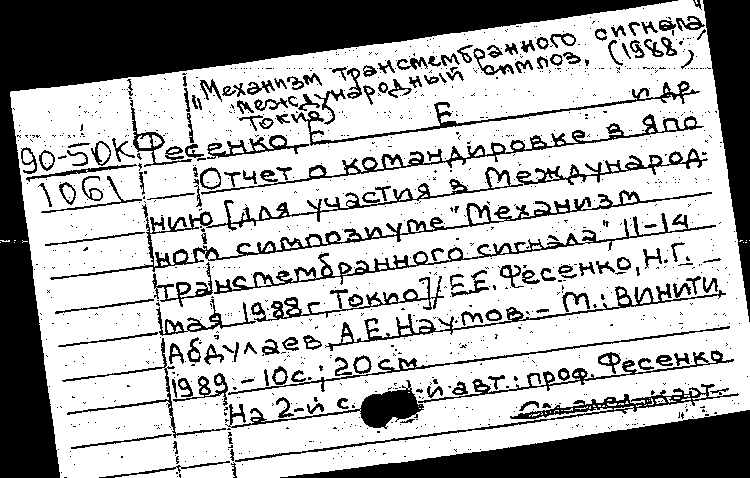 "Механизм трансмембранного сигнала,
международный симпоз. (1988;
Токио)
90-5DK Фесенко, Е Е и др.
1061 Отчет о командировке в Япо
нию [для участия в Международ-
ном симпозиуме "Механизм
трансмембранного сигнала", 11-14
мая 1988 г, Токио] / Е.Е. Фесенко, Н.Г.
Абдулаев, А.Е. Наумов. - М.: ВИНИТИ,
1989. - 10 с.; 20 см.
На 2-й с. -й авт.: проф. Фесенко
См. след. карт.